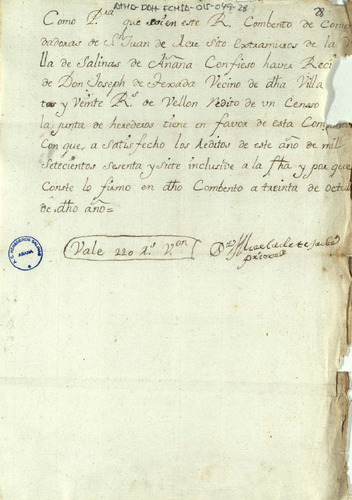 AMG-DDH-FCMSA-015-049-28
28
Como Pra que soi en este Rl Combento de Comen
dadoras de Sn Juan de Acre Sito Extramuros de la Vi
lla de Salinas de Añana Confieso haver Reci
de Don Joseph de Vezino de dha Villa
tos y Veinte Rs de Vellon Redito de un Censo
la junta de herederos tiene en favor de esta Com
Con que, a satisfecho los Reditos de este año de mil
Setecientos sesenta y Siete inclusive a la fha y por que
Conste lo firmo en dho Combento a treinta de Octu
de dho año=
Vale 220 Rs Von
Priora
AÑANA